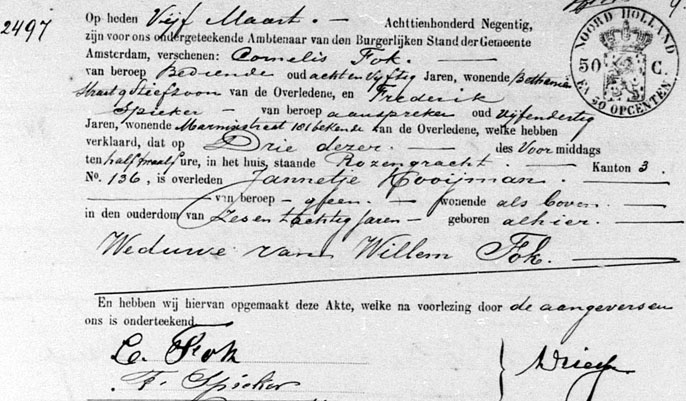 2497
Op heden Vijf Maart. — Achttienhonderd Negentig,
zijn voor ons ondergeteekende Ambtenaar van den Burgerlijken Stand der Gemeente
Amsterdam, verschenen: Cornelis Fok. —
van beroep Bediende oud acht en vijftig Jaren, wonende Bethanien
straat 9 Stiefzoon van de Overledene, en Frederik
Spieker — van beroep aanspreker oud vijfendertig
Jaren, wonende Marnixstraat 181 bekende van de Overledene, welke hebben
verklaard, dat op Drie dezer. — des Voormiddags
ten half twaalf ure, in het huis, staande Rozengracht. — Kanton 3
No. 136, is overleden Jannetje Kooijman. —
— van beroep — geen. — wonende als boven. —
in den ouderdom van Zes en tachtig jaren — geboren alhier. —
Weduwe van Willem Fok. —
En hebben wij hiervan opgemaakt deze Akte, welke na voorlezing door de aangevers en
ons is onderteekend.
C. Fok
F. Spieker
NOORD HOLLAND
50 C.
EN 50 OPCENTEN